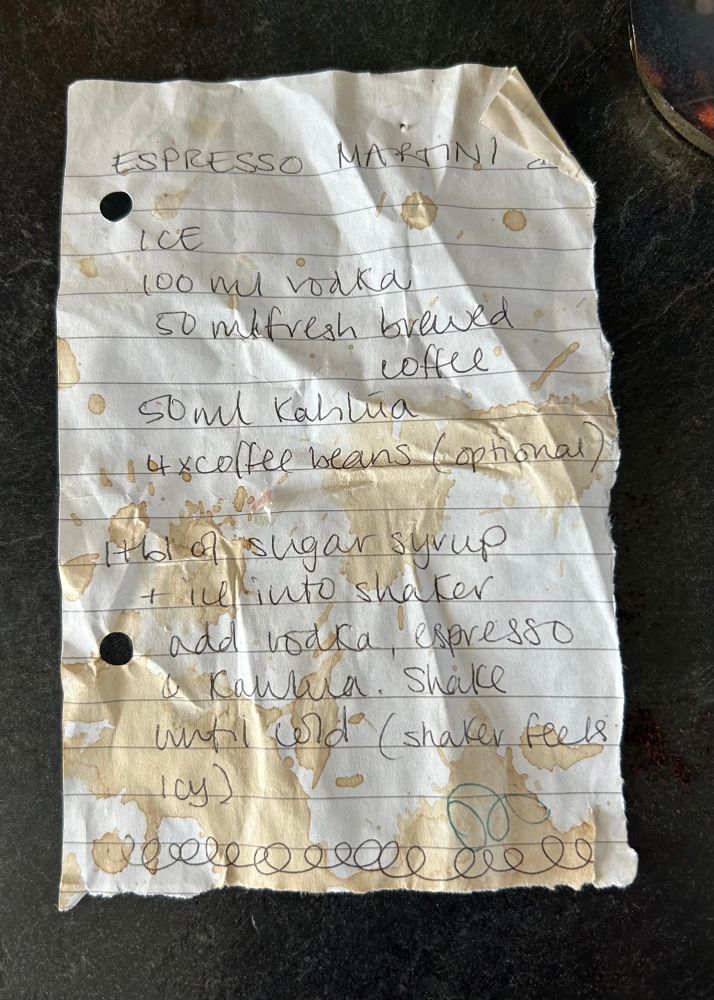 ESPRESSO MARTINI
ICE
100 ml vodka
50 ml fresh brewed
coffee
50ml Kahlúa
4 x coffee beans (optional)
1 tbl of sugar syrup
+ ice into shaker
add vodka, espresso
& Kahlúa. Shake
until cold (shaker feels
icy)